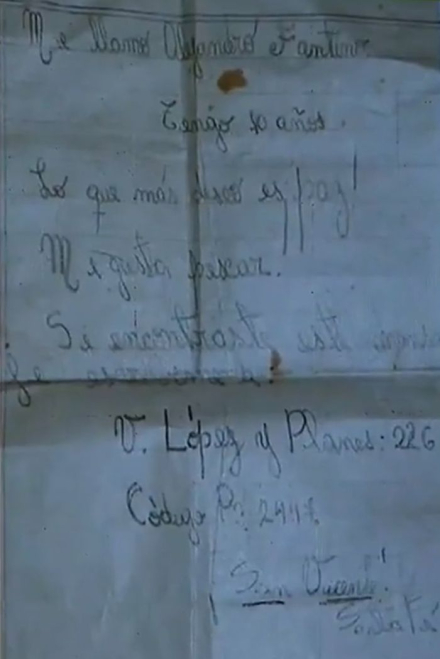 Me llamo Alejandro Fantino
Tengo 10 años.
Lo que más deseo es paz!
Me gusta pescar.
Si encontraste este mensa
je escribime a:
V. López y Planes: 226
Código P: 244
San Vicente!
Santa Fé